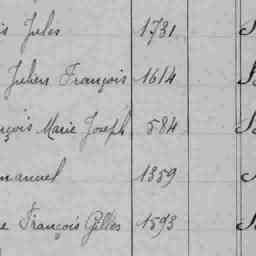 is Jules 1731
Julien François 1614
nçois Marie Joseph 584
manuel 1359
e François Gilles 1593